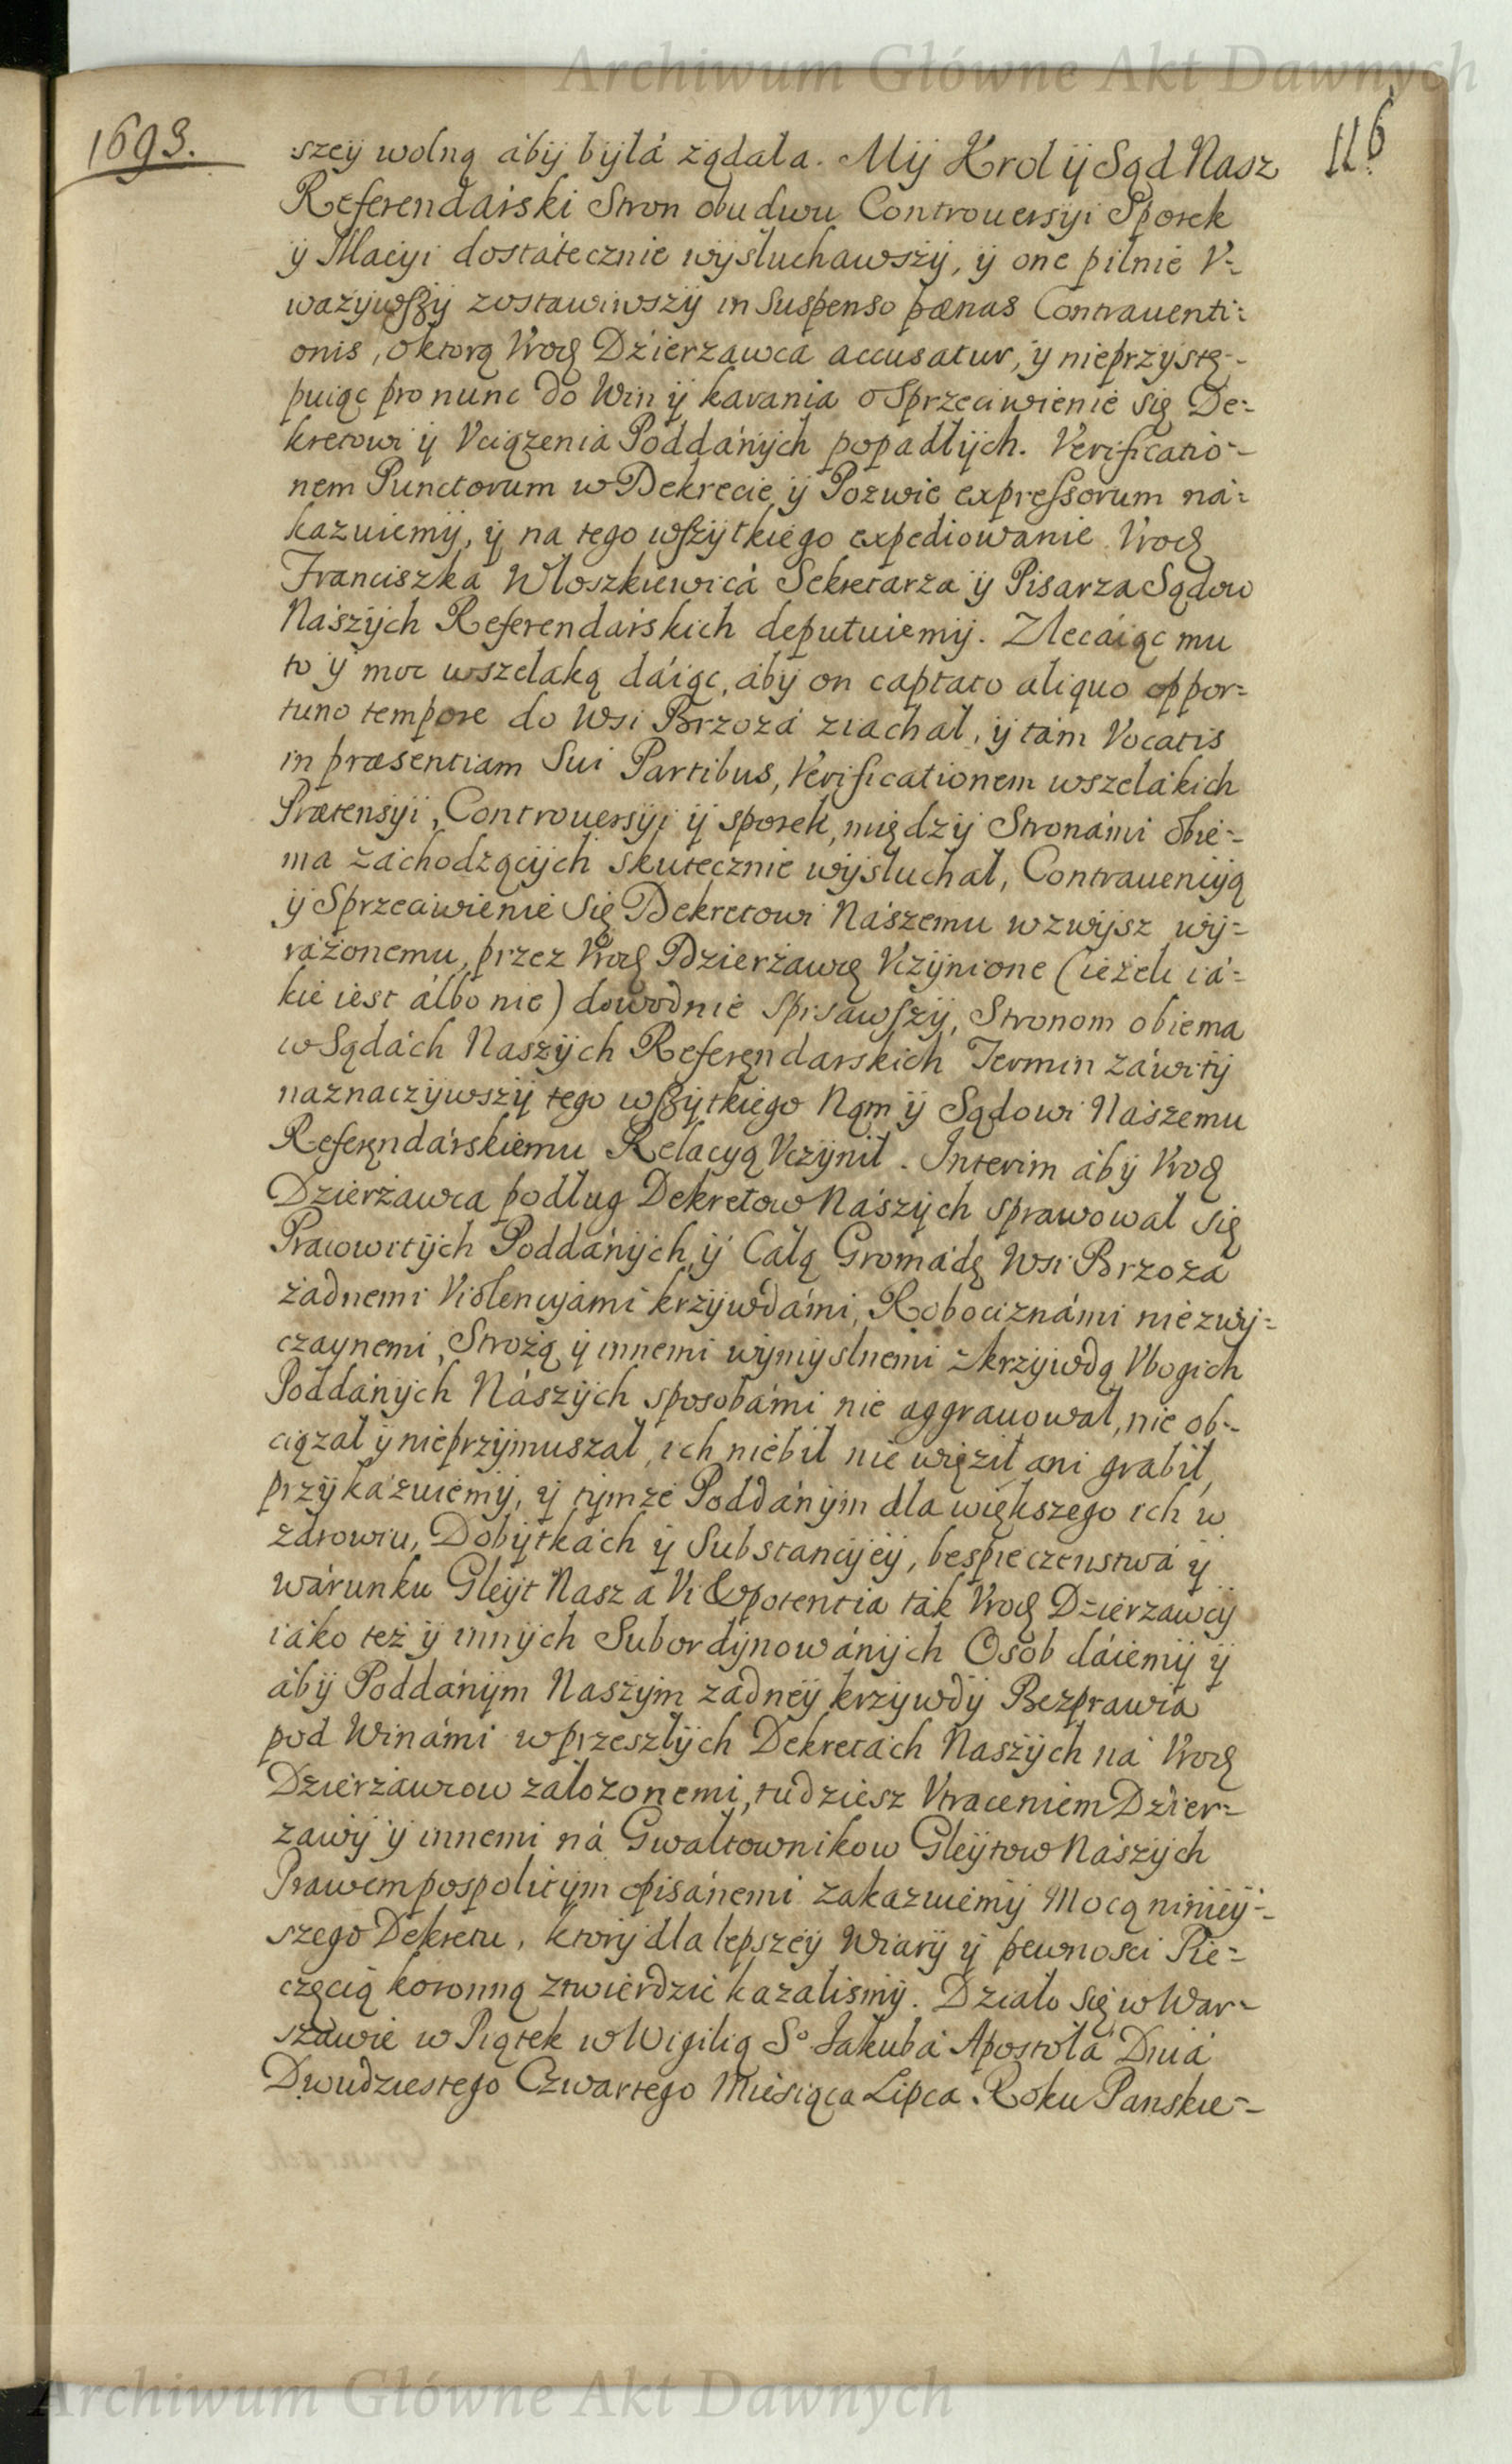 Archiwum Główne Akt Dawnych
1693.
116
szeÿ wolną ábÿ bÿłá żądała. Mÿ Krol ÿ Sąd Nasz
Referendárski Stron obudwu Controuersÿi Sporek
ÿ Illacÿi dostátecznie wÿsłuchawszÿ, ÿ one pilnie V-
ważÿwszÿ zostawiwszÿ in Suspenso pænas Contrauenti:
onis, oktorą Vrodz Dzierzawca accusatur, ÿ nieprzÿstę-
puiąc pro nunc do Win ÿ karania o Sprzeciwienie się De-
kretowi ÿ Vciązenia Poddánÿch popadłÿch. Verificatio-
nem Punctorum w Dekrecie ÿ Pozwie expressorum ná-
kazuiemÿ, ÿ na tego wszÿtkiego expediowanie Vrodz
Franciszka Włoszkiewicá Sekretarza ÿ Pisarza Sądow
Nászÿch Referendárskich deputuiemÿ. Zlecáiąc mu
to ÿ moc wszelaką dáiąc, ábÿ on captato aliquo oppor-
tuno tempore do Wsi Brzozá ziachał, ÿ tám Vocatis
in præsentiam Sui Partibus, Verificationem wszelákich
Prætensÿi, Controuersÿi ÿ sporek, międzÿ Stronámi obie-
ma záchodzącÿch skutecznie wÿsłuchał, Contrauencÿą
ÿ Sprzeciwienie Się Dekretowi Nászemu wzwÿsz wÿ-
ráżonemu, przez Vrodz Dzierżawcę Vczÿnione (ieżeli iá-
kie iest álbo nie) dowodnie spisawszÿ, Stronom obiema
w Sądách Naszÿch Referendarskich Termin záwitÿ
naznaczÿwszÿ tego wszÿtkiego Nąm ÿ Sądowi Nászemu
Referęndárskiemu Relacÿą Vczÿnił. Interim ábÿ Vrodz
Dzierżawca podług Dekretow Nászÿch sprawował się
Pracowitÿch Poddánÿch ÿ Całą Gromádę Wsi Brzoza
żadnemi Violencÿámi krzÿwdámi, Robociznámi niezwÿ-
czaynemi, Strożą ÿ innemi wÿmÿslnemi z krzÿwdą Vbogich
Poddánÿch Nászÿch sposobámi nie aggrauował, nie ob-
ciązał ÿ nieprzÿmuszał, ich niebił nie więził ani grabił,
przÿkázuiemÿ, ÿ tÿmże Poddánÿm dla większego ich w
zdrowiu, Dobÿtkách ÿ Substancÿeÿ, bespieczenstwá ÿ
wárunku Gleÿt Nasz a Vi & potentia ták Vrodz Dzierzawcÿ
iáko też ÿ innÿch Subordÿnowánÿch Osob dáiemÿ ÿ
ábÿ Poddánÿm Naszÿm żadneÿ krzÿwdÿ Bezprawia
pod Winámi w przeszłÿch Dekretách Naszÿch ná Vrodz
Dzierżawcow założonemi, tudziesz Vtraceniem Dzier-
zawÿ ÿ innemi ná Gwałtownikow Gleÿtow Nászÿch
Prawem pospolitÿm opisánemi zakazuiemÿ Mocą ninieÿ-
szego Dekretu, ktorÿ dla lepszeÿ Wiarÿ ÿ pewnosci Pie-
częcią koronną ztwierdzić kazalismÿ. Działo się w War-
szawie w Piątek w Wigilią So Jakubá Apostołá Dniá
Dwudziestego Czwartego Miesiąca Lipca Roku Panskie-
Archiwum Główne Akt Dawnych